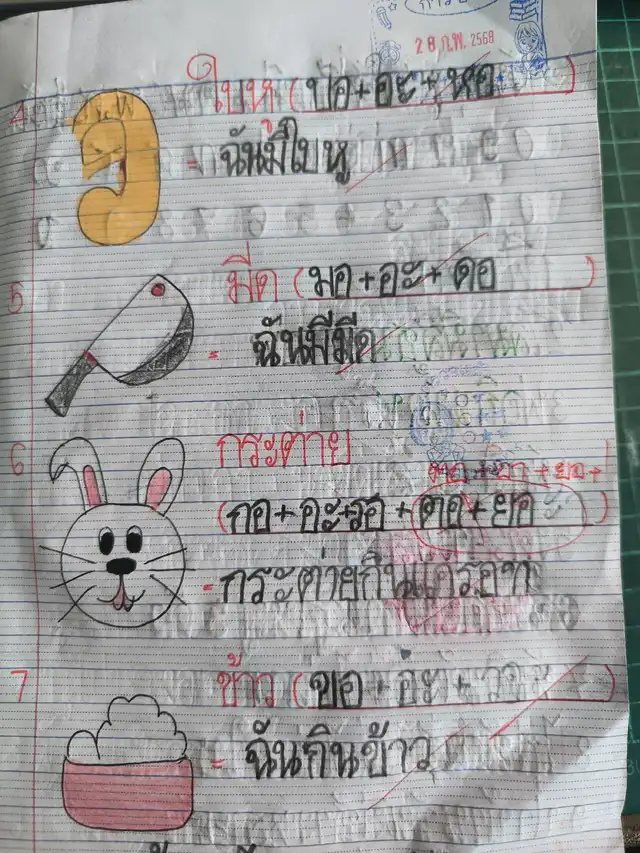 28 ก.พ. 2568
ใบหู (บอ+อะ+หอ)
= ฉันมีใบหู
5 มีด (มอ+อะ+ดอ)
= ฉันมีมีด
6 กระต่าย
(กอ+อะ+รอ+ตอ+ยอ)
= กระต่ายกินแครอท
7 ข้าว (ขอ+อะ+วอ)
= ฉันกินข้าว